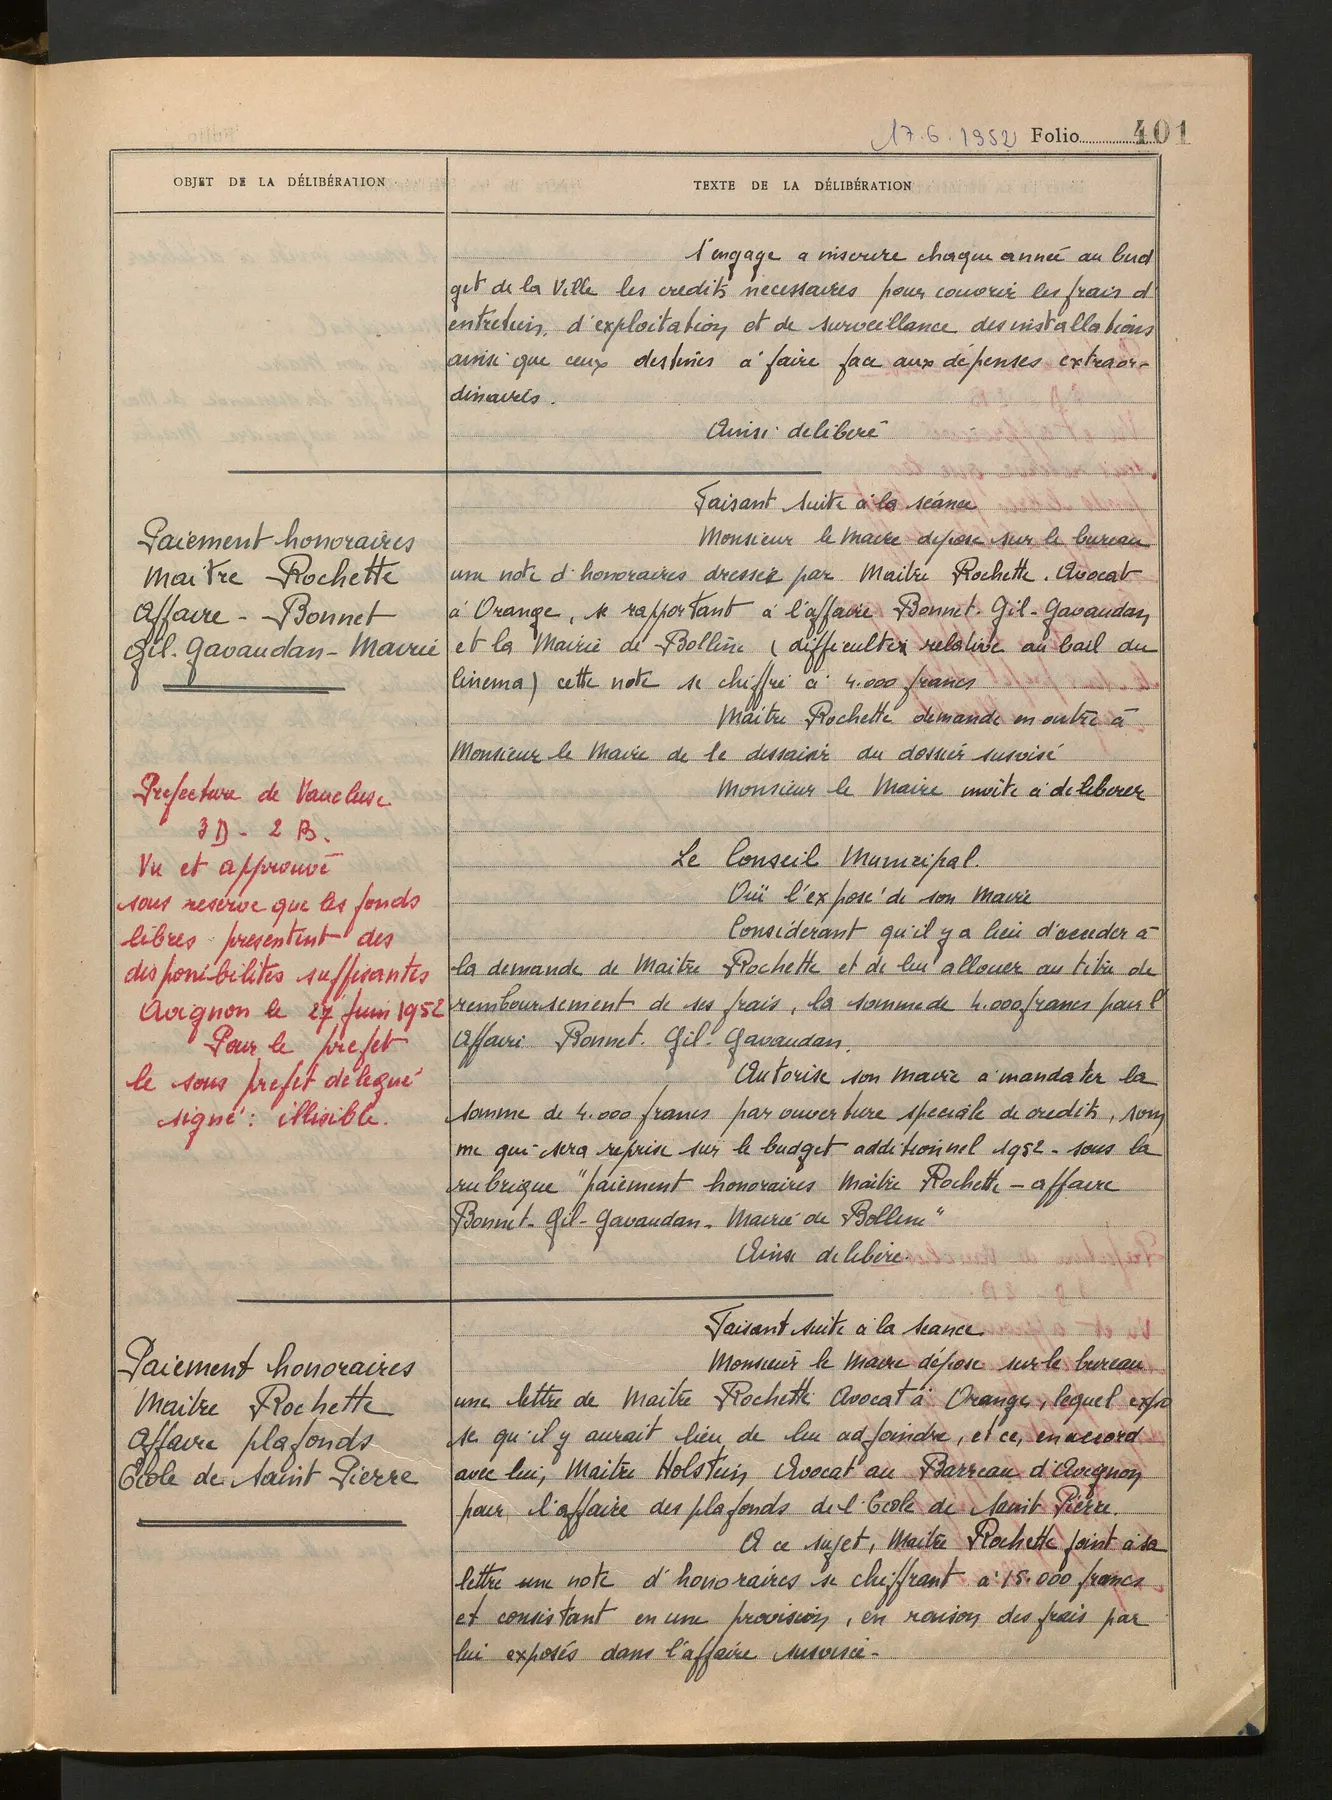 17.6.1952 Folio 401
OBJET DE LA DÉLIBÉRATION
TEXTE DE LA DÉLIBÉRATION
s'engage a inscrire chaque année au bud
get de la Ville les credits necessaires pour couvrir les frais d
entretien, d'exploitation et de surveillance des installations
ainsi que ceux destinés a faire face aux dépenses extraor-
dinaires.
Ainsi deliberé
Paiement honoraires
Maitre Rochette
Affaire - Bonnet
Gil. Gavaudan - Mairie
Faisant suite à la séance
Monsieur le Maire depose sur le bureau
une note d'honoraires dressée par Maitre Rochette. Avocat
à Orange, se rapportant à l'affaire Bonnet. Gil - Gavaudan
et la Mairie de Bollène (difficultés relative au bail du
Cinema) cette note se chiffre à 4.000 francs
Maitre Rochette demande en outre à
Monsieur le Maire de le dessaisir du dossier susvisé
Monsieur le Maire invite à deliberer
Prefecture de Vaucluse
3 D - 2 B.
Vu et approuvé
sous reserve que les fonds
libres presentent des
disponibilités suffisantes
Avignon le 27 juin 1952
Pour le prefet
le sous prefet délegué
signé : illisible.
Le Conseil Municipal.
Ouï l'exposé de son Maire
Considerant qu'il y a lieu d'acceder à
la demande de Maitre Rochette et de lui allouer au titre de
remboursement de ses frais, la somme de 4.000 francs pour l'
Affaire Bonnet. Gil - Gavaudan.
Autorise son Maire a mandater la
somme de 4.000 francs par ouverture speciale de credits, som
me qui sera reprise sur le budget additionnel 1952 - sous la
rubrique "paiement honoraires Maitre Rochette - affaire
Bonnet - Gil - Gavaudan - Mairie de Bollene"
Ainsi delibéré.
Paiement honoraires
Maitre Rochette
Affaire plafonds
Ecole de Saint Pierre
Faisant suite à la seance
Monsieur le Maire dépose sur le bureau
une lettre de Maitre Rochette Avocat à Orange, lequel expo
se qu'il y aurait lieu de lui adjoindre, et ce, en accord
avec lui, Maitre Holstein, Avocat au Barreau d'Avignon
pour l'affaire des plafonds de l'Ecole de Saint Pierre.
A ce sujet, Maitre Rochette joint à sa
lettre une note d'honoraires se chiffrant a 15.000 francs
et consistant en une provision, en raison des frais par
lui exposés dans l'affaire susvisée -